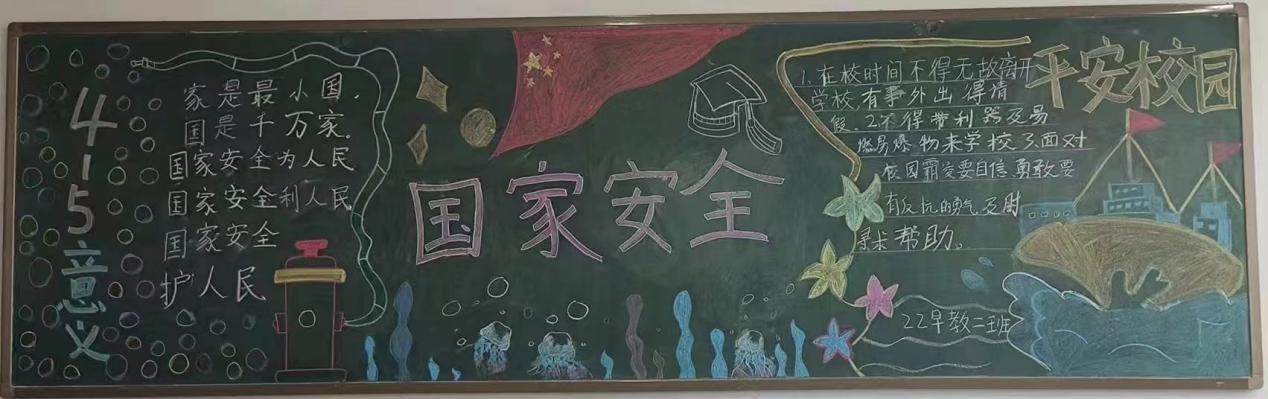 415意义
家是最小国,
国是千万家.
国家安全为人民
国家安全利人民
国家安全
护人民
国家安全
平安校园
1.在校时间不得无故离开
学校.有事外出得请
假.2.不得带利器及易
燃易爆物来学校3.面对
校园霸凌要自信勇敢要
有反抗的勇气及时
寻求帮助。
22早教二班